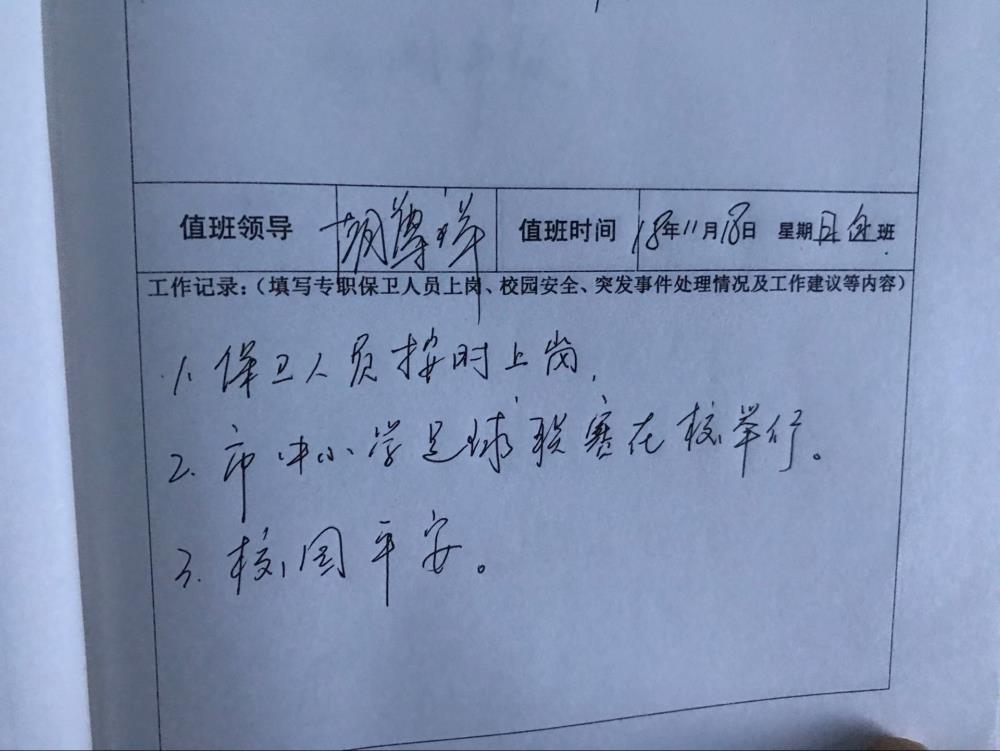 值班领导 胡尊祥 值班时间 18年11月18日 星期日 班
工作记录:（填写专职保卫人员上岗、校园安全、突发事件处理情况及工作建议等内容）
1. 保卫人员按时上岗,
2. 市中小学足球联赛在校举行。
3. 校园平安。